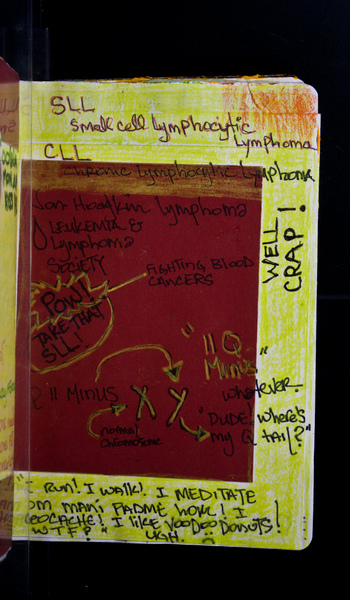 SLL
small cell lymphocytic
Lymphoma
CLL
chronic lymphocytic lymphoma
Non Hodgkin lymphoma
LEUKEMIA &
Lymphoma
SOCIETY
FIGHTING BLOOD
CANCERS
WELL
CRAP!
POW!
TAKE THAT
SLL!
"11Q
Minus"
Q 11 MINUS
X Y
whatever.
normal
chromosome
"DUDE! Where's
my Q tail?"
"I RUN! I WALK! I MEDITATE
OM MANI PADME HOM! I
GEOCACHE! I LIKE VOODOO DONUTS!
WTF?" UGH.